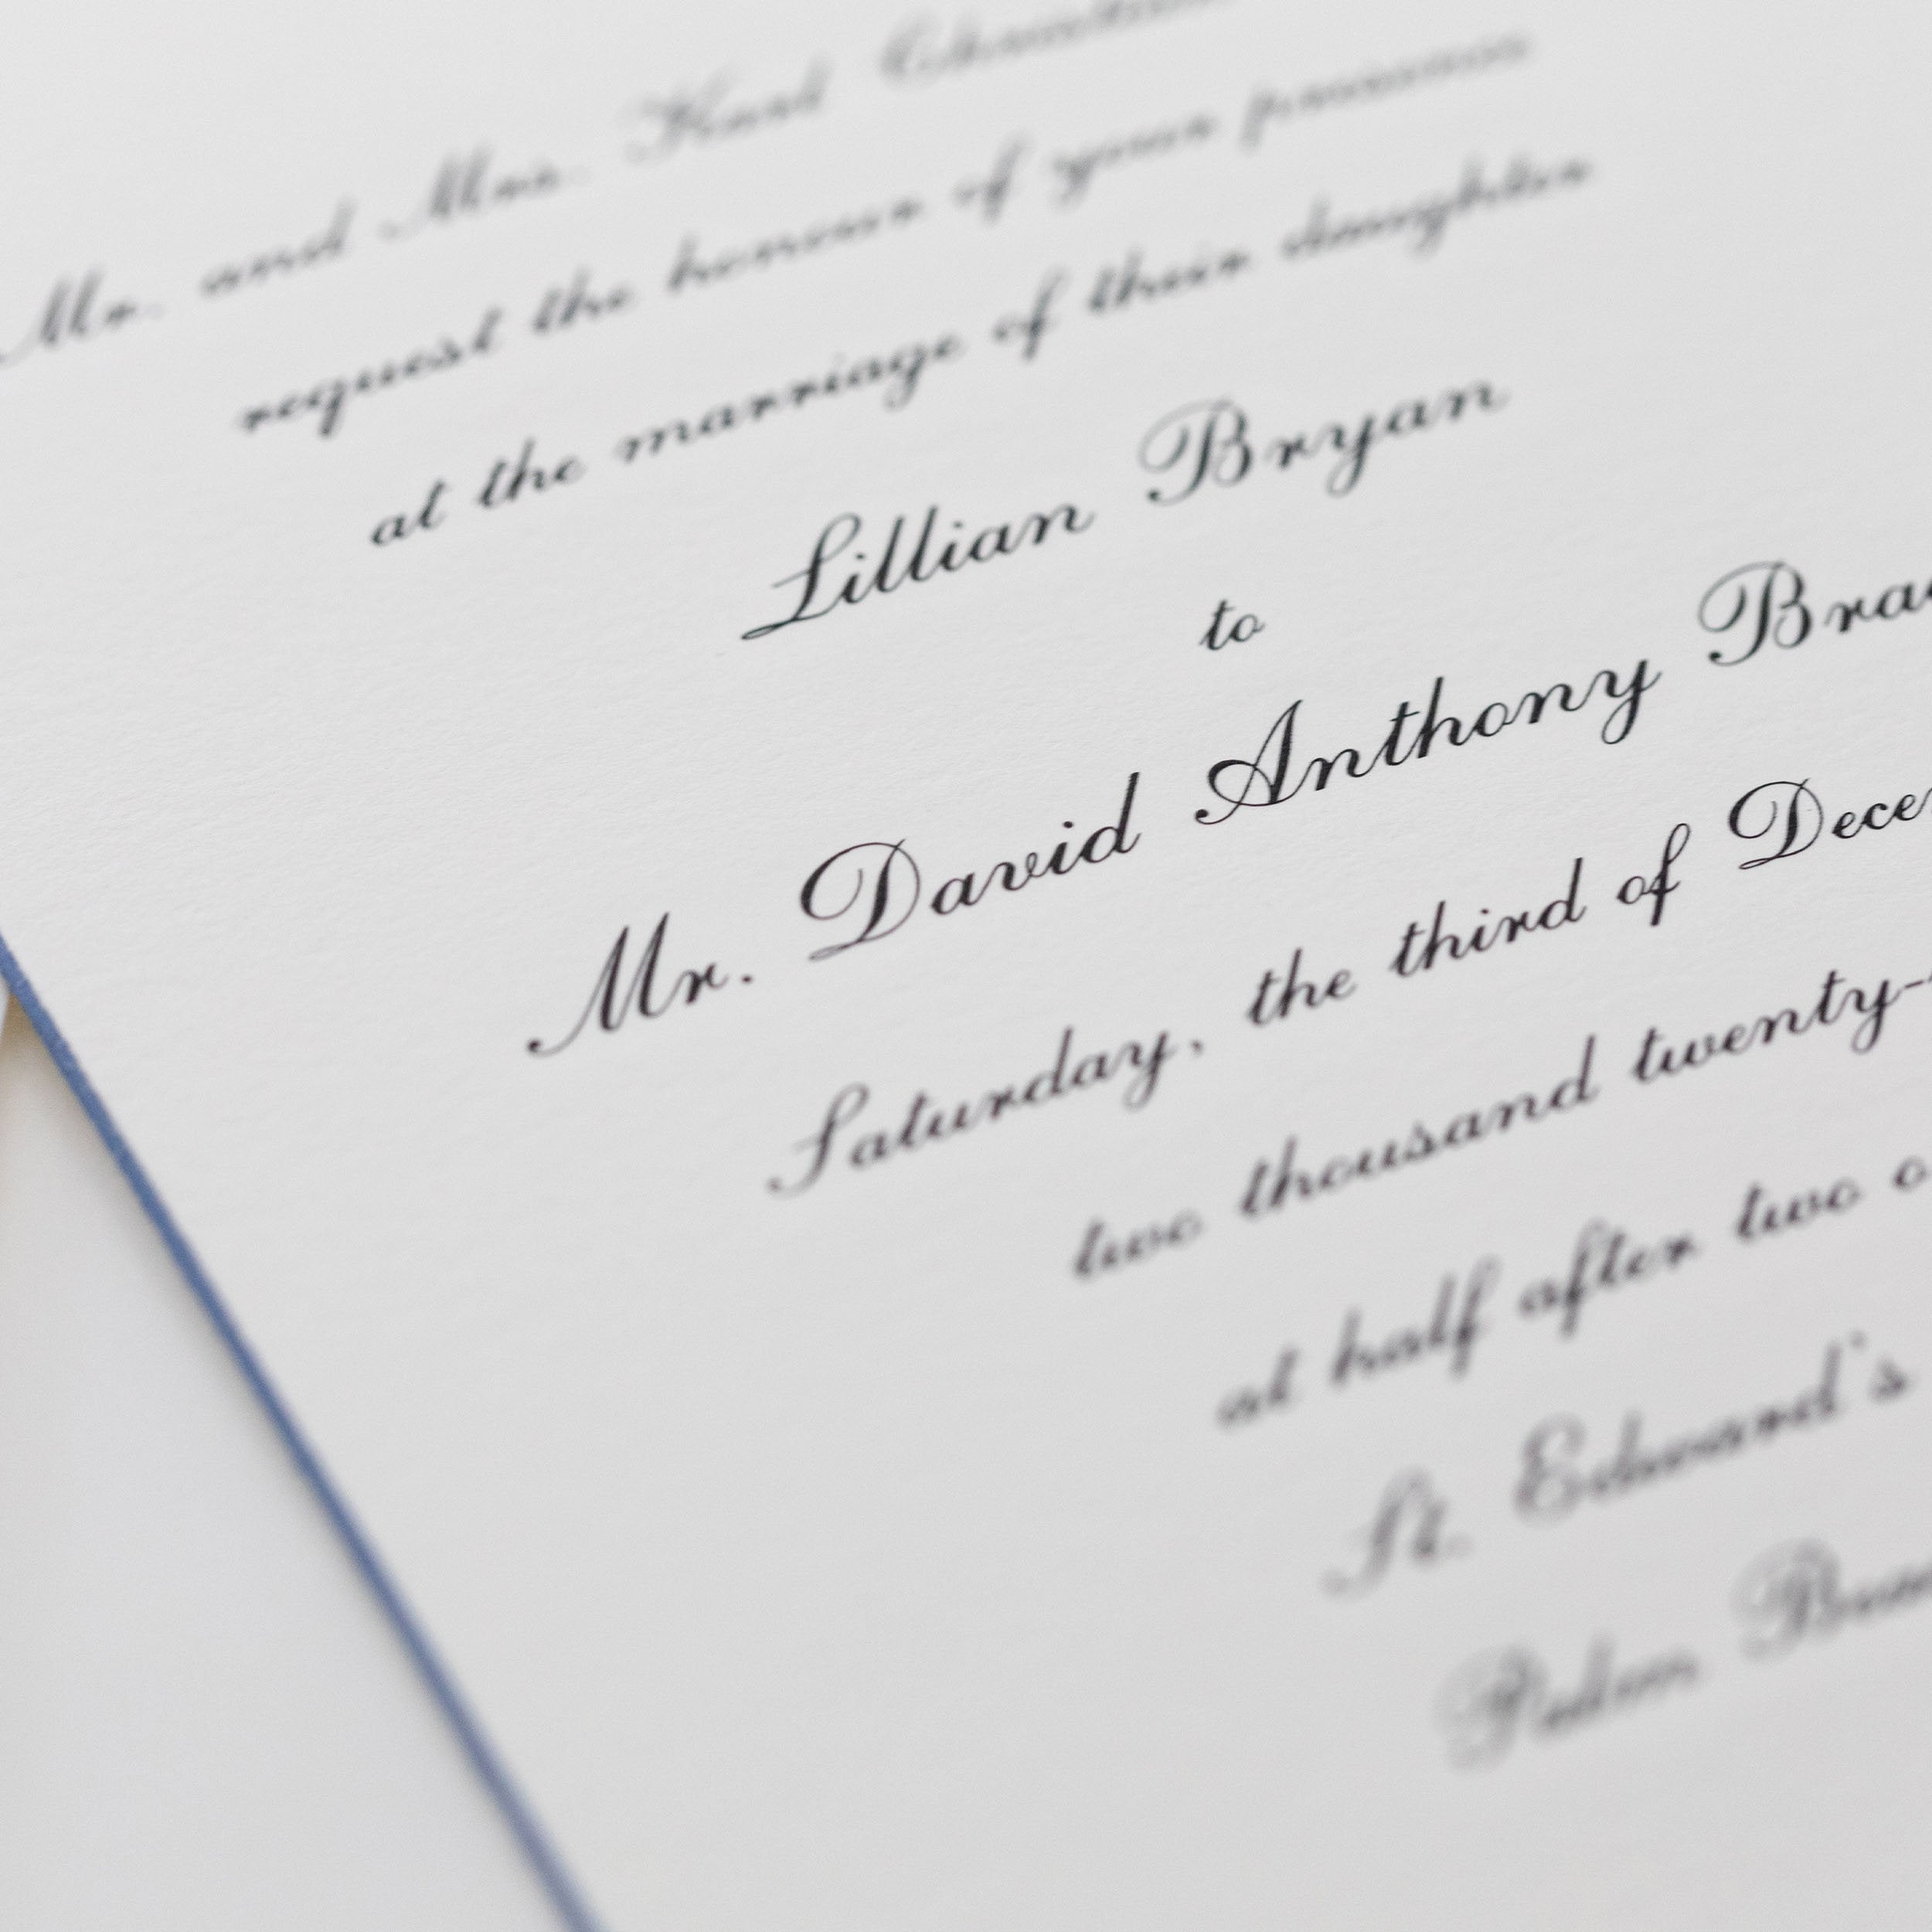 Mr. and Mrs. Karl
request the honour of your presence
at the marriage of their daughter
Lillian Bryan
to
Mr. David Anthony
Saturday, the third of
two thousand twenty-
at half after two
St. Edward's
Palm